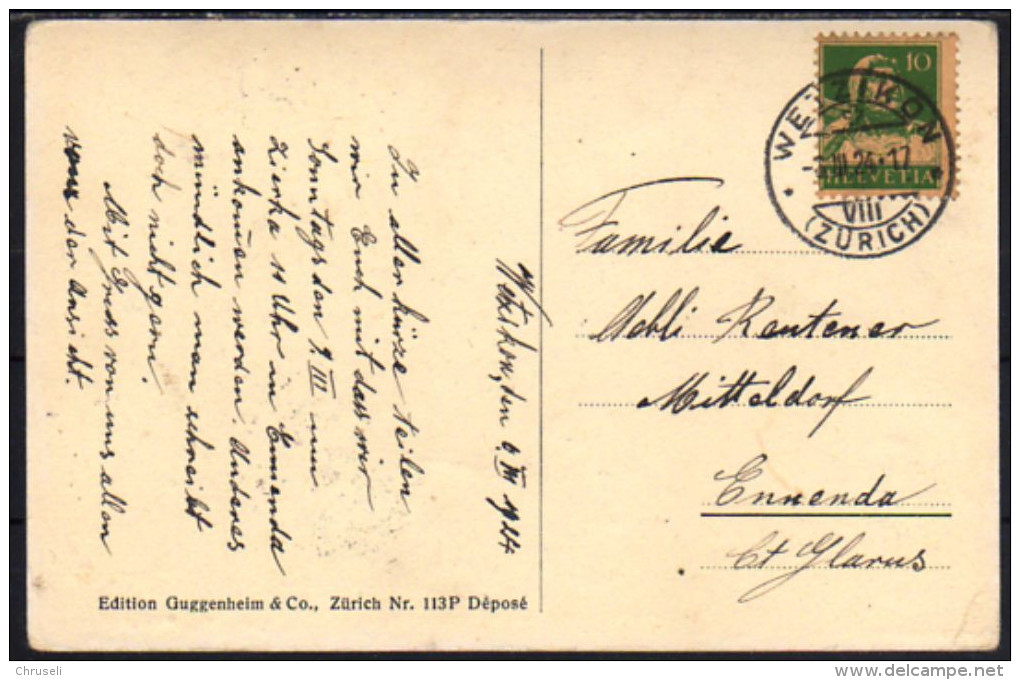 Wetzikon, den 6. III 1924
In aller kürze teilen
wir Euch mit dass wir
Sonntags den 9. III um
zierka 11 Uhr in Ennenda
ankom̄en werden. Anderes
mündlich man schreibt
doch nicht gern.
Mit Gruss von uns allen
der Ansicht.
Edition Guggenheim & Co., Zürich Nr. 113P Déposé
10
HELVETIA
WETZIKON
III.24.-17
VIII
(ZÜRICH)
Familie
Aebli Rentener
Mitteldorf
Ennenda
Ct Glarus
Chruseli
www.delcampe.net